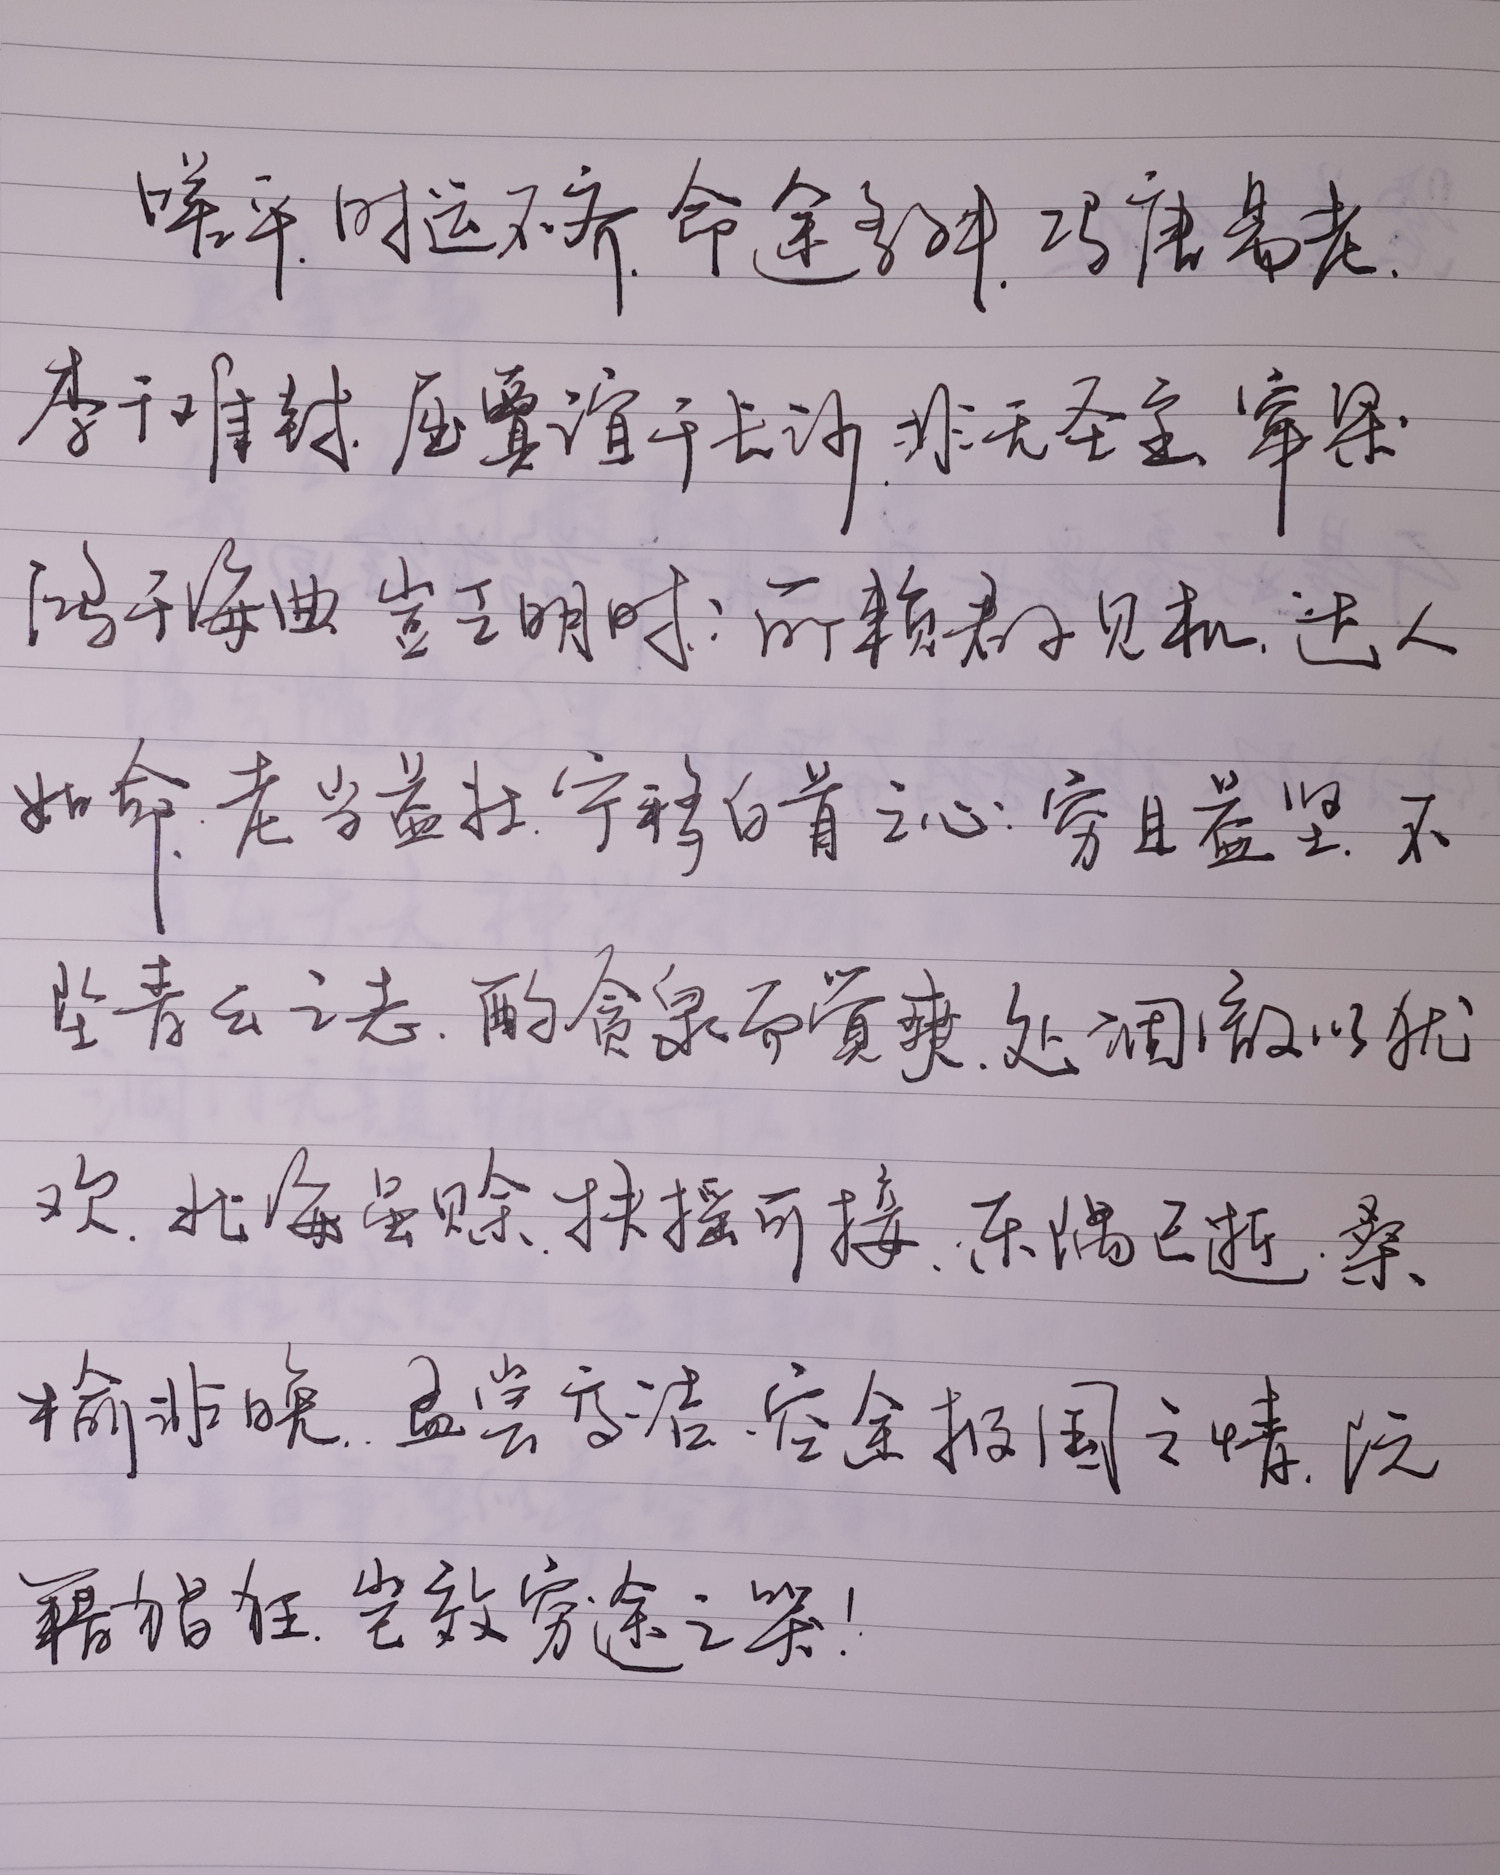 嗟乎.时运不齐.命途多舛.冯唐易老.
李广难封.屈贾谊于长沙.非无圣主.窜梁
鸿于海曲.岂乏明时;所赖君子见机.达人
知命.老当益壮.宁移白首之心.穷且益坚.不
坠青云之志.酌贪泉而觉爽.处涸辙以犹
欢.北海虽赊.扶摇可接.东隅已逝.桑
榆非晚.孟尝高洁.空余报国之情.阮
籍猖狂.岂效穷途之哭!